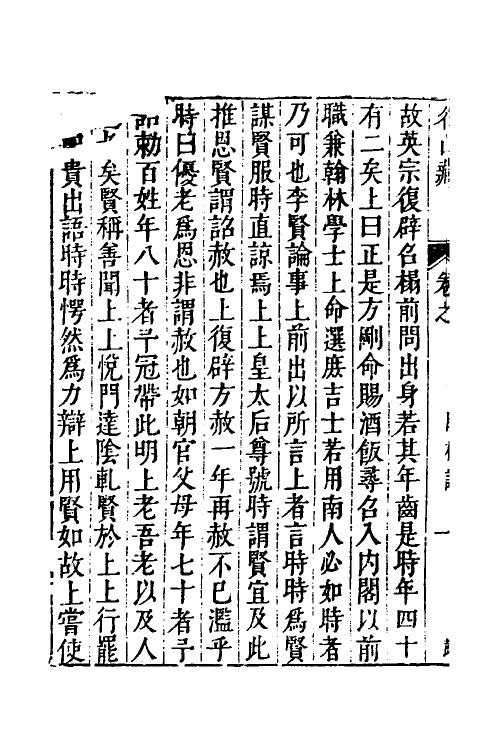 故英宗復辟名榻前問出身若其年齒是時年四十
有二矣上曰正是方剛命賜酒飯尋名入内閣以前
職兼翰林學士上命選庶吉士若用南人必如時者
乃可也李賢論事上前出以所言上者言時時爲賢
謀賢服時直諒焉上上皇太后尊號時謂賢宜及此
推恩賢謂詔赦也上復辟方赦一年再赦不已濫乎
時曰優老爲恩非謂赦也如朝官父母年七十者予
勅百姓年八十者予冠帶此明上老吾老以及人
矣賢稱善聞上上悅門達陰軋賢於上上行罷
貴出語時時愕然爲力辯上用賢如故上嘗使